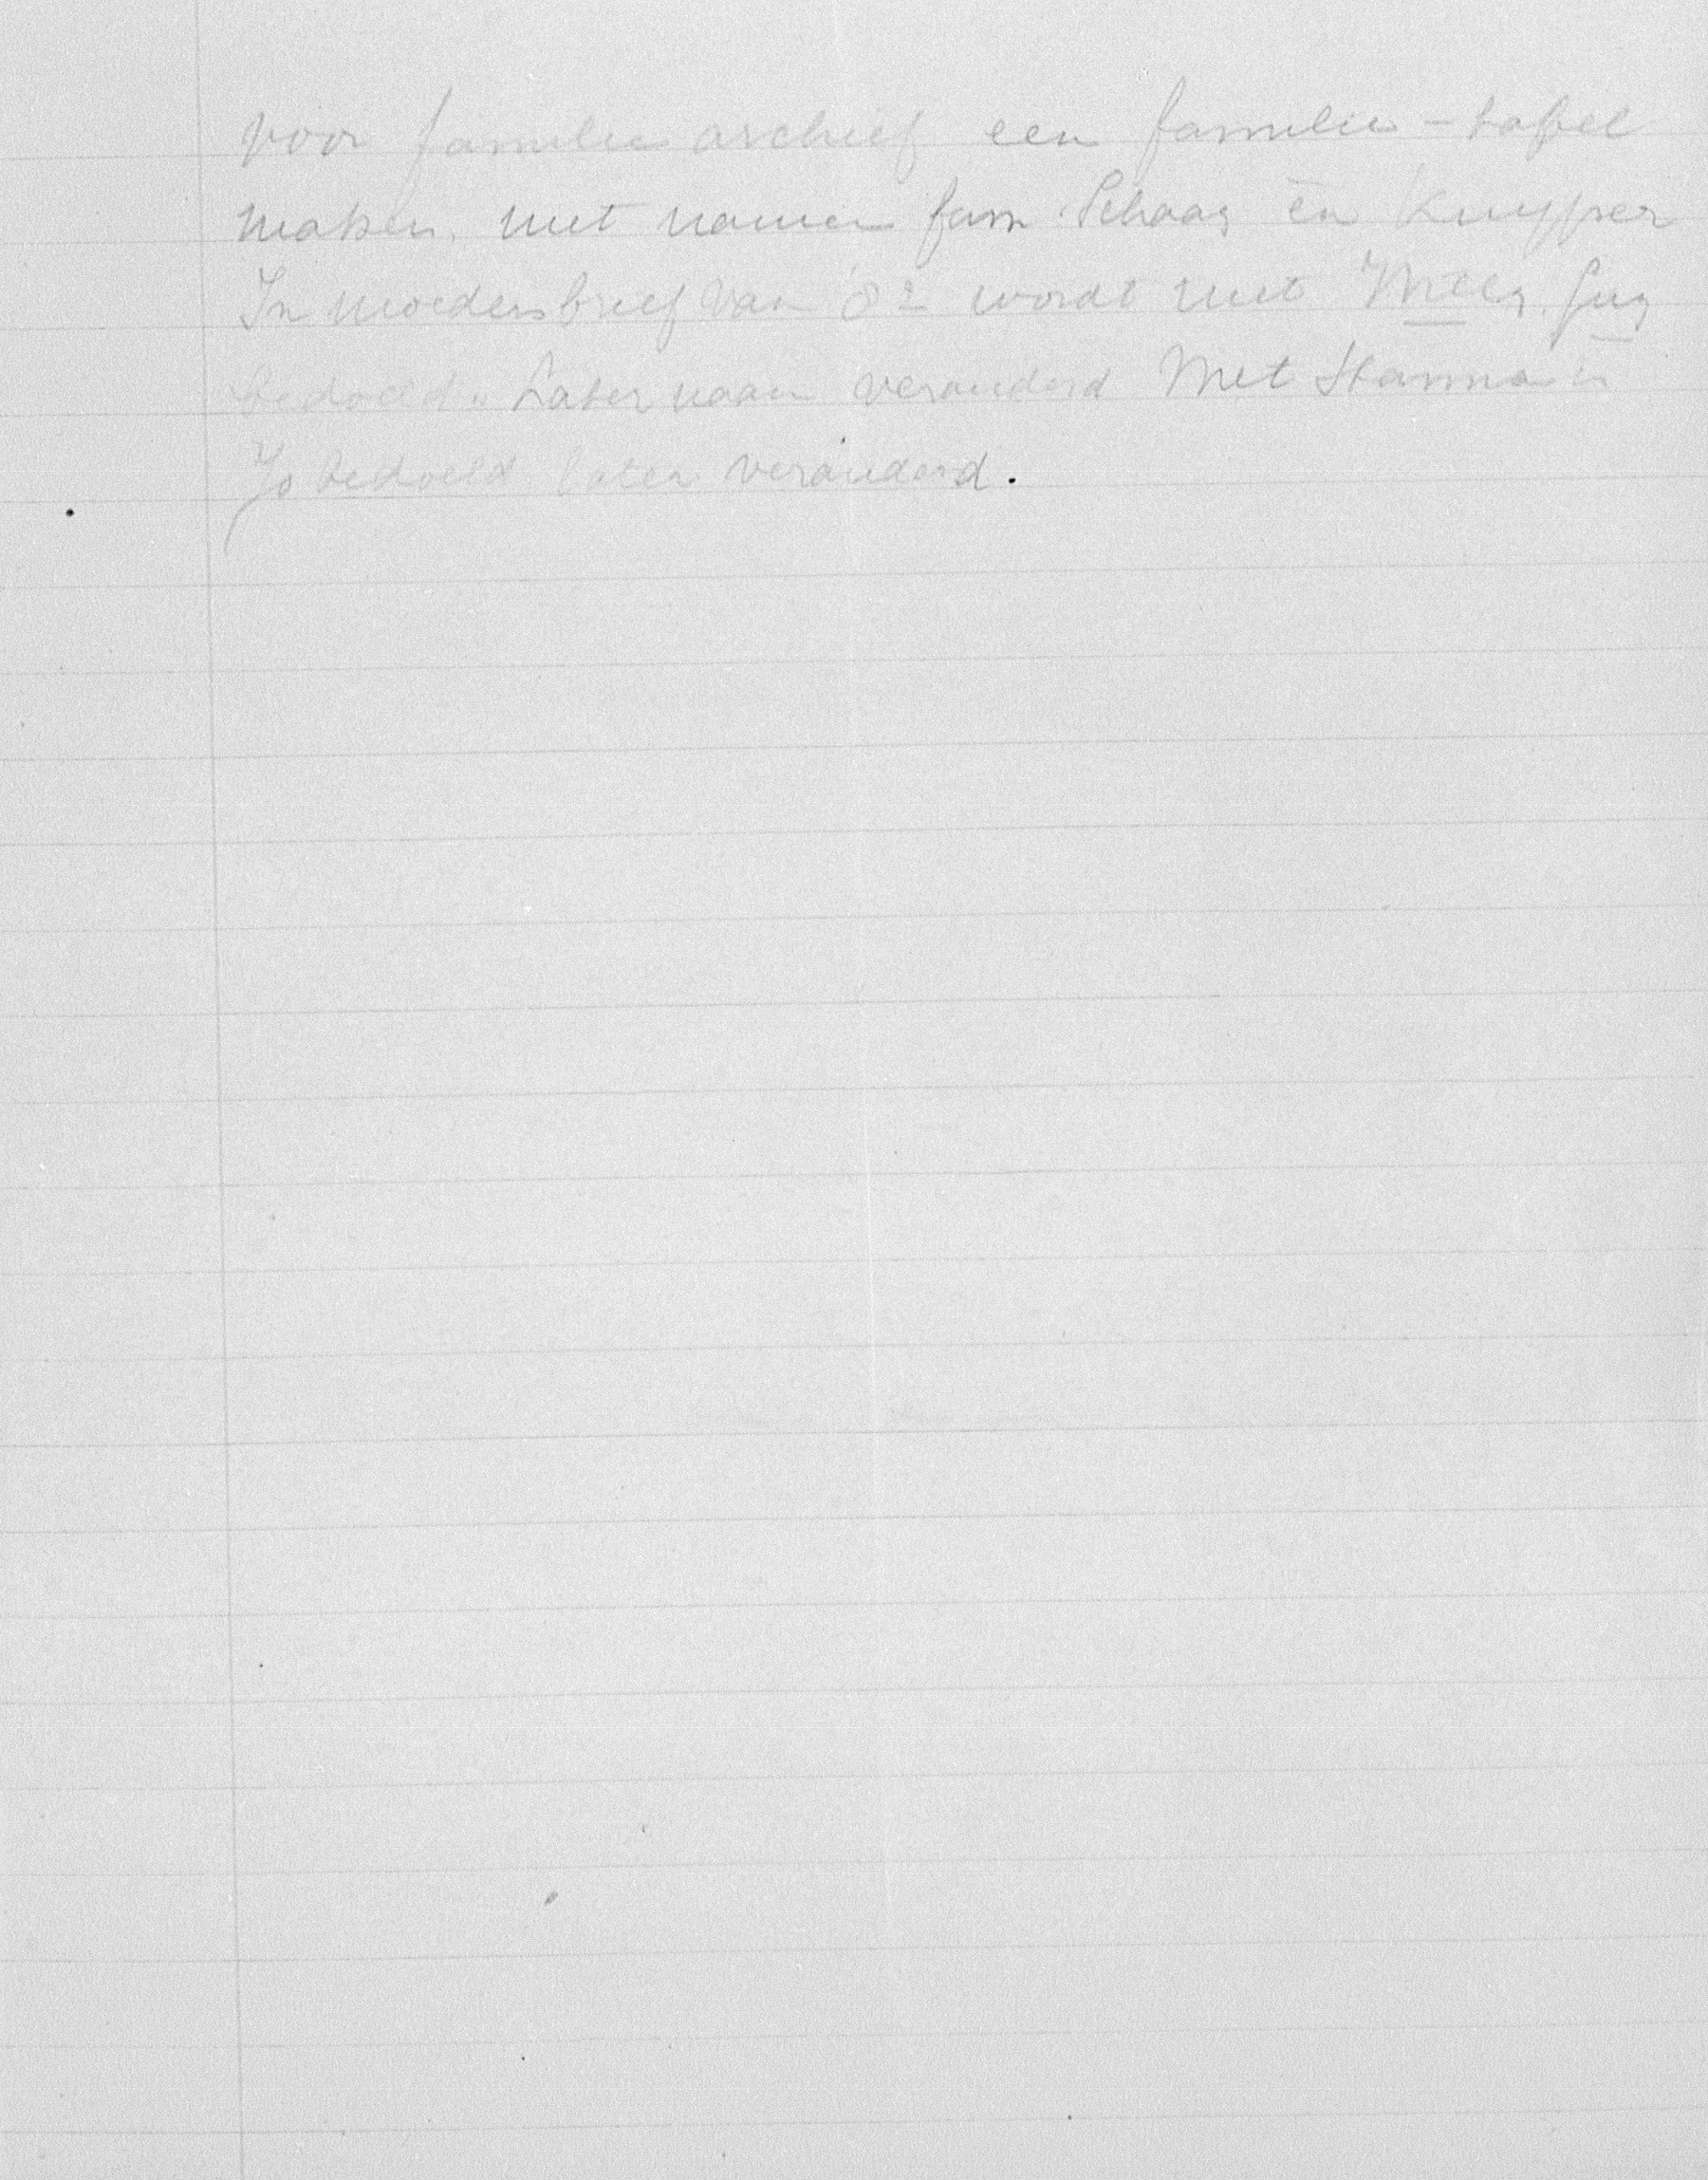 voor familie archief een familie - tafel
maken. met namen fam. Schaay en Kuyper
In moeders brief van 82 wordt met
bedoeld. Later naam veranderd Met Hanna is
Jo bedoeld later veranderd.